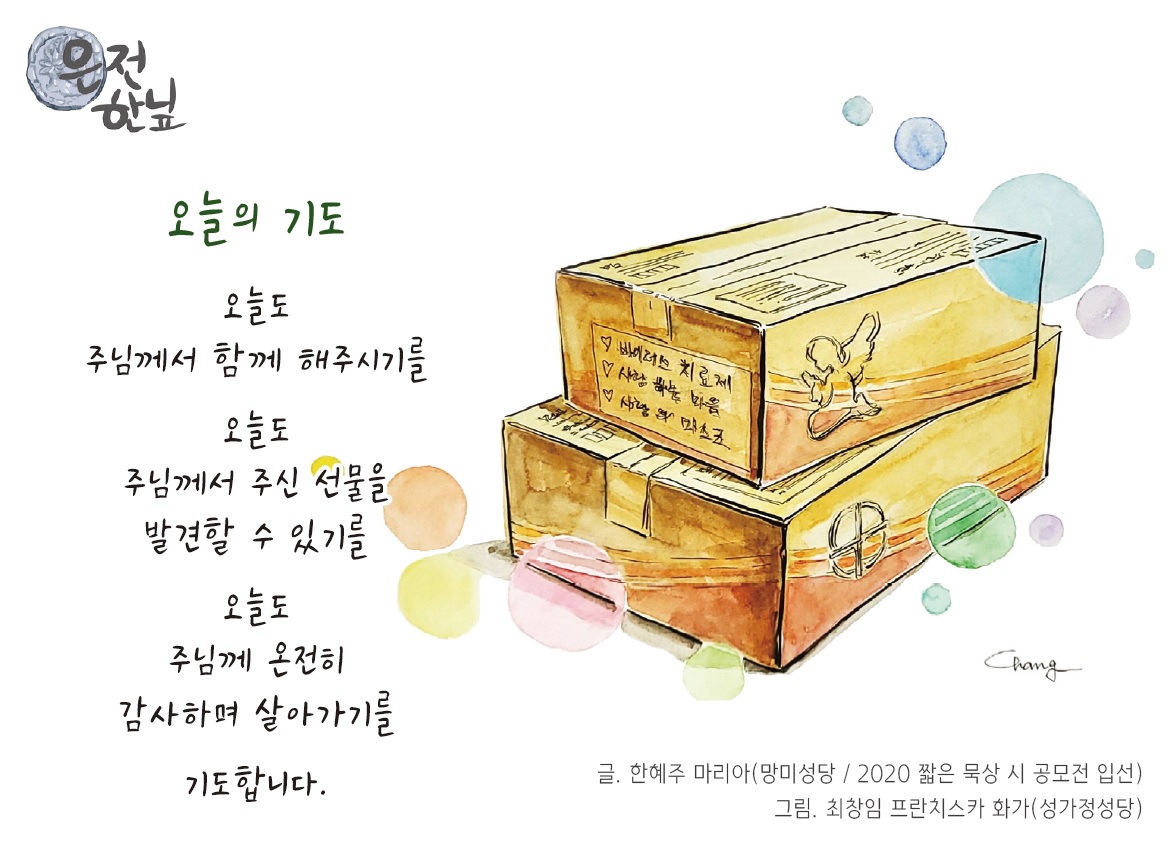 은전
한닢
오늘의 기도
오늘도
주님께서 함께 해주시기를
오늘도
주님께서 주신 선물을
발견할 수 있기를
오늘도
주님께 온전히
감사하며 살아가기를
기도합니다.
♡ 바이러스 치료제
♡ 사랑 하는 마음
♡ 사랑의
Chang
글. 한혜주 마리아(망미성당 / 2020 짧은 묵상 시 공모전 입선)
그림. 최창임 프란치스카 화가(성가정성당)